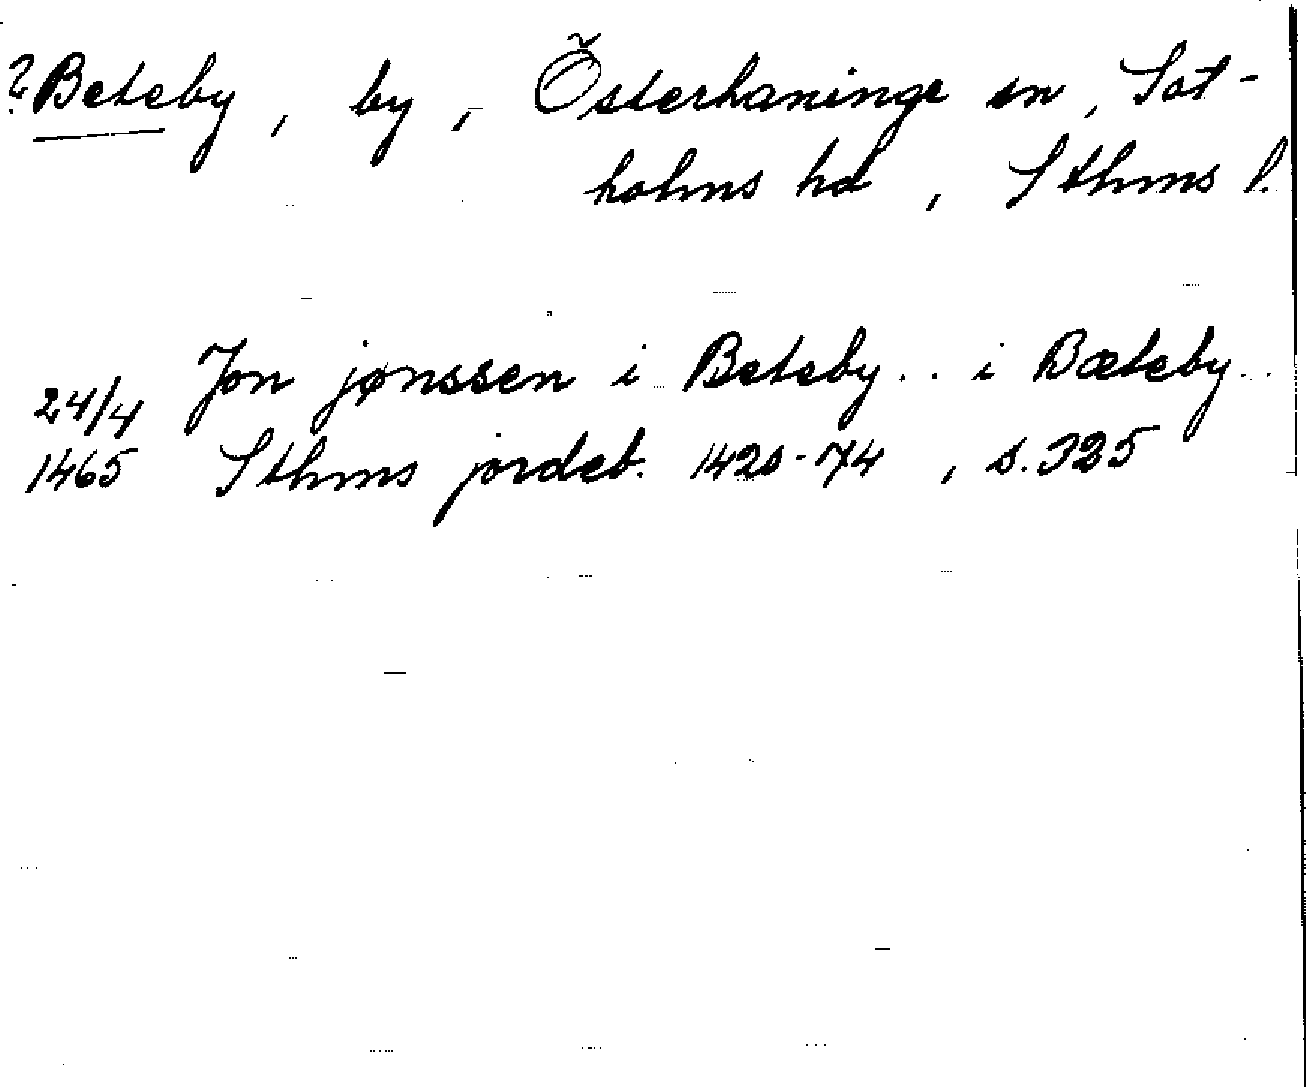 ? Beteby, by, Österhaninge sn, Sot-
holms hd, Sthms l.
24/4 Jon jønssen i Beteby.. i Bæteby..
1465 Sthms jordeb. 1420-74, s. 325